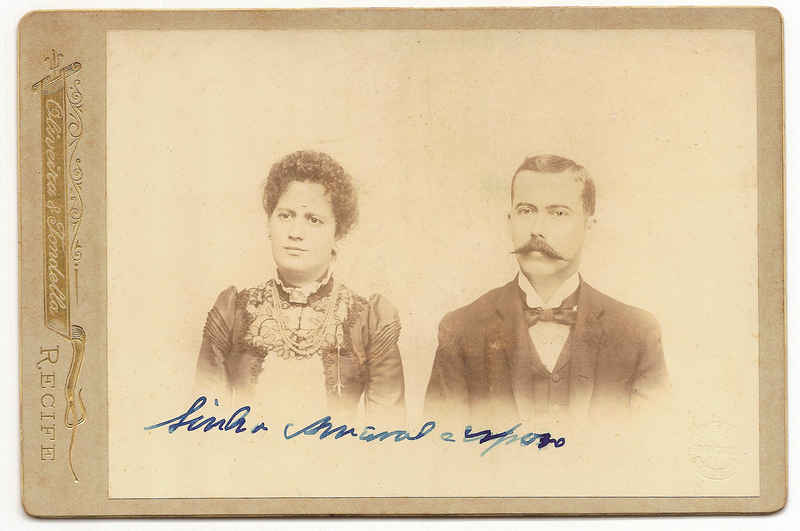 Oliveira & Tondella
RECIFE
Sinha Amaral e esposo